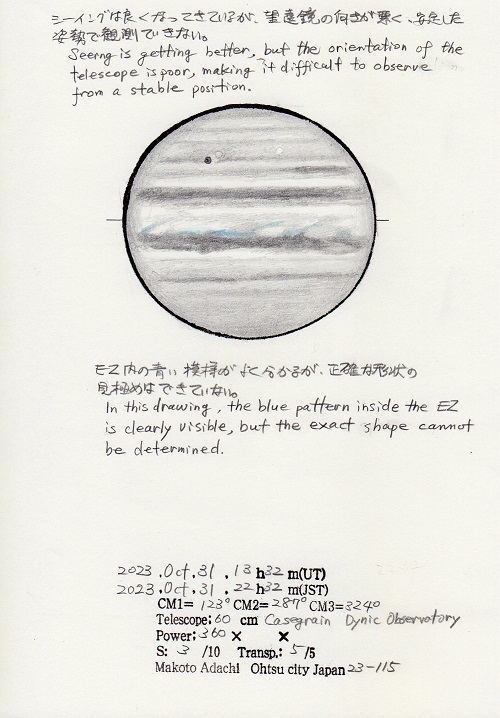 シーイングは良くなってきているが、望遠鏡の向きが悪く、安定した
姿勢で観測でいきない。
Seeing is getting better, but the orientation of the
telescope is poor, making it difficult to observe
from a stable position.
EZ内の青い模様がよく分かるが、正確な形状の
見極めはできていない。
In this drawing, the blue pattern inside the EZ
is clearly visible, but the exact shape cannot
be determined.
2023.Oct.31.13h32m(UT)
2023.Oct.31.22h32m(JST)
CM1=123° CM2=287° CM3=324°
Telescope:60 cm Casegrain Dynic Observatory
Power:360× ×
S: 3 /10 Transp.: 5/5
Makoto Adachi Ohtsu city Japan 23-115